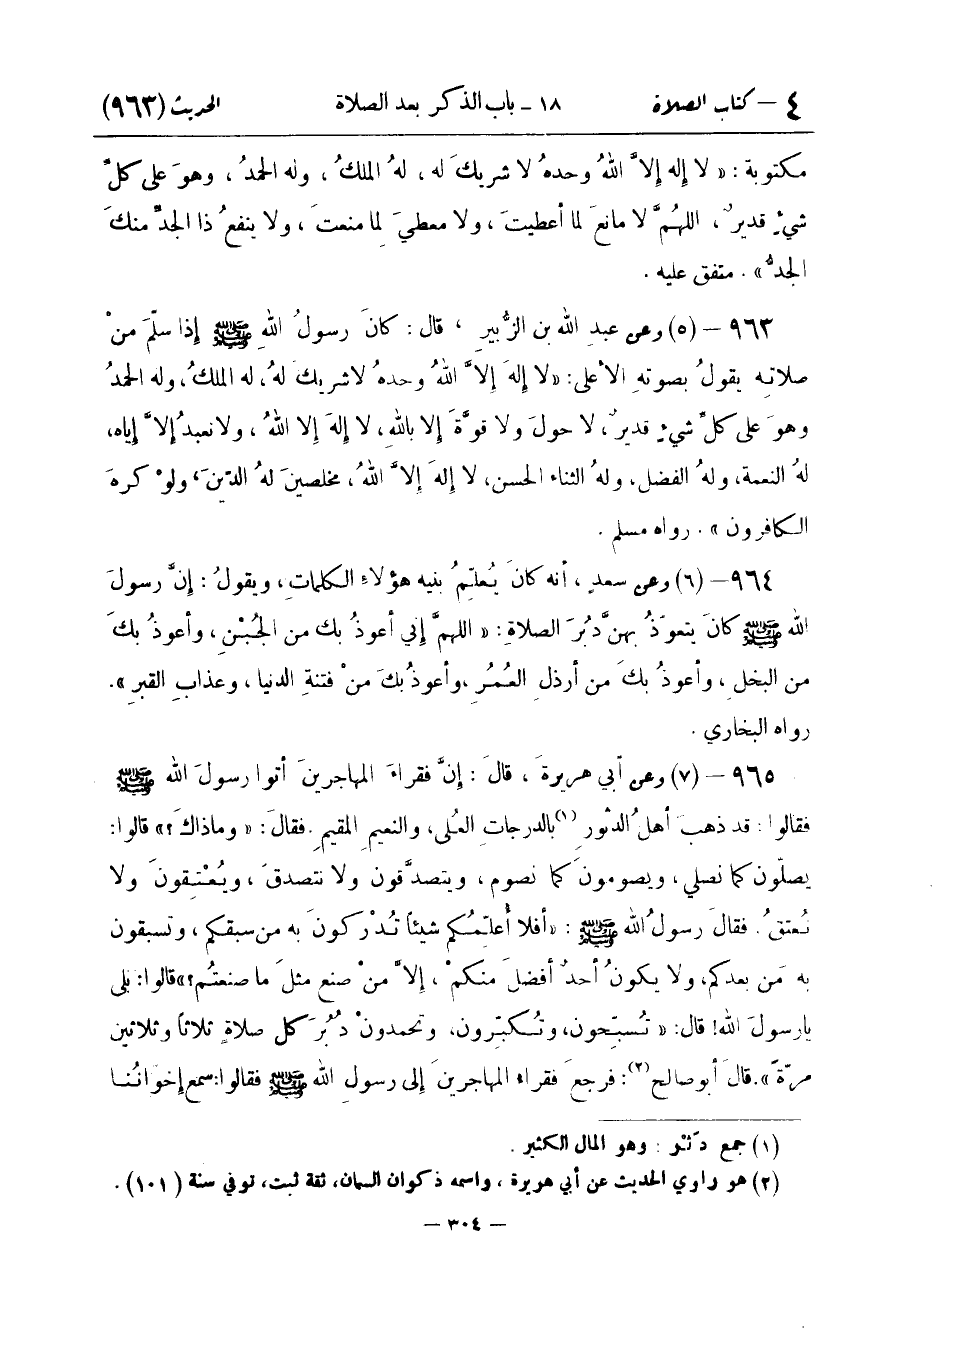 ٤ – كتاب الصلاة ١٨ - باب الذكر بعد الصلاة الحديث (٩٦٣)
مكتوبة : « لا إله إلاَّ اللهُ وحدهُ لا شريكَ له ، لهُ الملكُ ، وله الحمدُ ، وهوَ على كلِّ
شيءٍ قديرٌ ، اللهُمَّ لا مانعَ لما أعطيتَ ، ولا معطيَ لما منعتَ ، ولا ينفعُ ذا الجدِّ منكَ
الجدُّ » . متفق عليه .
٩٦٣ – (٥) وعن عبدِ الله بن الزُّبيرِ ، قال : كانَ رسولُ اللهِ ﷺ إذا سلّمَ منْ
صلاتِه يقولُ بصوتهِ الأعلى : « لا إلهَ إلاَّ اللهُ وحدهُ لا شريكَ لهُ ، له الملكُ ، وله الحمدُ
وهوَ على كلِّ شيءٍ قديرٌ ، لا حولَ ولا قوَّةَ إلا باللهِ ، لا إلهَ إلا اللهُ ، ولا نعبدُ إلاَّ إياه ،
لهُ النعمة ، ولهُ الفضل ، ولهُ الثناء الحسن ، لا إلهَ إلاَّ اللهُ ، مخلصينَ لهُ الدّينَ ، ولوْ كرهَ
الكافرون » . رواه مسلم .
٩٦٤ – (٦) وعن سعدٍ ، أنه كانَ يُعلِّمُ بنيه هؤلاءِ الكلماتِ ، ويقولُ : إنَّ رسولَ
الله ﷺ كانَ يتعوّذُ بهنَّ دُبُرَ الصلاةِ : « اللهمَّ إني أعوذُ بك من الجُبْنِ ، وأعوذُ بكَ
من البخلِ ، وأعوذُ بكَ من أرذلِ العُمُرِ ، وأعوذُ بكَ منْ فتنةِ الدنيا ، وعذابِ القبرِ » .
رواه البخاري .
٩٦٥ – (٧) وعن أبي هريرةَ ، قالَ : إنَّ فقراءَ المهاجرينَ أتوا رسولَ الله ﷺ
فقالوا : قد ذهبَ أهلُ الدثورِ (١) بالدرجاتِ العُلى ، والنعيمِ المقيمِ . فقالَ : « وماذاكَ ؟ » قالوا :
يصلّون كما نصلي ، ويصومون كما نصوم ، ويتصدَّقون ولا نتصدقَ ، ويُعْتِقونَ ولا
نُعتقُ . فقالَ رسولُ الله ﷺ : « أفلا أُعلِّمُكم شيئاً تُدْركونَ به من سبقكم ، وتسبقون
به مَن بعدكم ، ولا يكونُ أحدٌ أفضلَ منكمْ ، إلاَّ منْ صنع مثلَ ما صنعتُم ؟ » قالوا : بلى
يا رسولَ الله ! قال : « تُسبِّحون ، وتُكبِّرون ، وتحمدونْ دُبُرَ كل صلاةٍ ثلاثاً وثلاثين
مرّةً » . قالَ أبو صالح (٢) : فرجعَ فقراء المهاجرينَ إلى رسولِ الله ﷺ فقالوا : سمع إخوانُنا
(١) جمع دَثْر : وهو المال الكثير .
(٢) هو راوي الحديث عن أبي هريرة ، واسمه ذكوان السمان ، ثقة ثبت ، توفي سنة (١٠١) .
– ٣٠٤ –